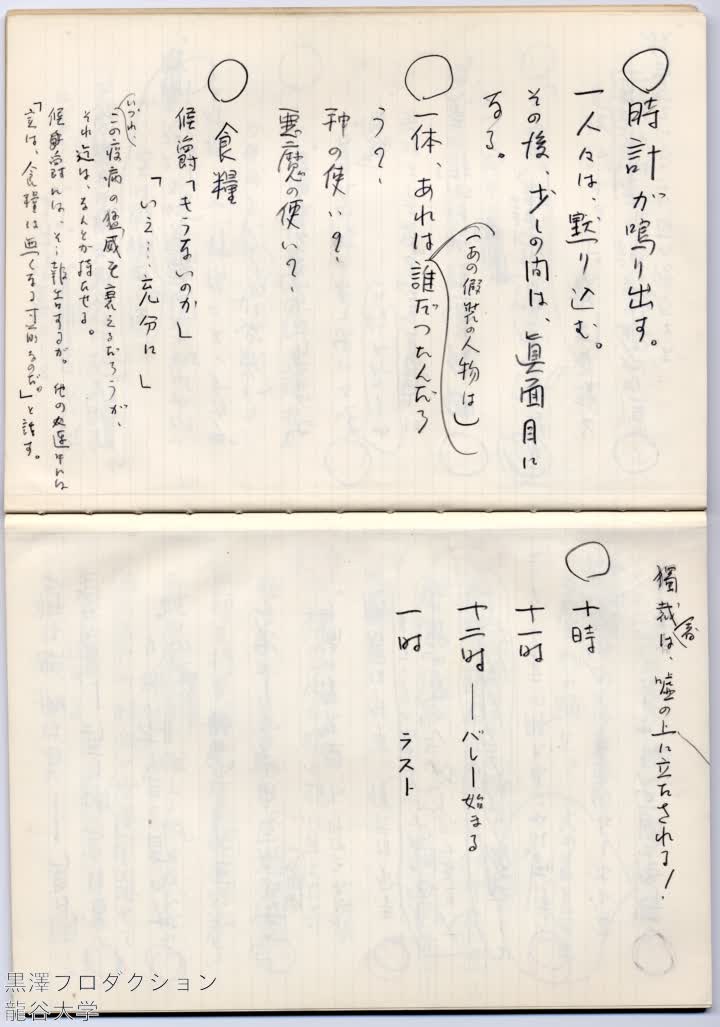 ○時計が鳴り出す。
一人々は、默り込む。
その後、少しの間は、眞面目に
なる。
(あの假装の人物は)
○一体、あれは誰だつたんだろ
う?、
神の使い?、
悪魔の使い?、
○食糧
候爵「もうないのか」
「いえ…充分に」
いづれ、
この疫病の猛威も衰えるだろうが、
それ迄は、なんとか持たせる。
候爵には、そう報告するが、他の連中には
「実は、食糧は無くなる寸前なのだ。」と話す。
獨裁(者)は、嘘の上に立たされる!
○十時
十一時
十二時――バレー始まる
一時 ラスト
黒澤プロダクション
龍谷大学